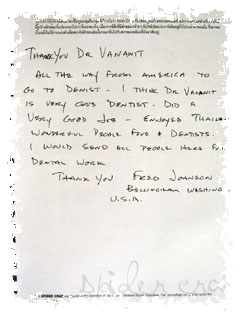 THANK YOU DR VANANIT
ALL THE WAY FROM AMERICA TO
GO TO DENIST. I THINK DR VANANIT
IS VERY GOOD DENTIST. DID A
VERY GOOD JOB - ENJOYED THAILA
WONDERFUL PEOPLE FOOD & DENTISTS.
I WOULD SEND ALL PEOPLE HERE FOR
DENTAL WORK
THANK YOU FRED JOHNSON
BELLINGHAM WASHING.
U.S.A.
spider cric
SPIDER CRIC